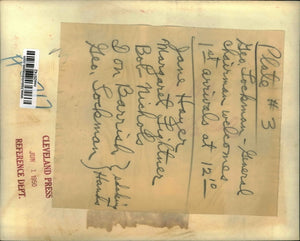 Plate # 3
Geo Lockman - General
chairman welcomes
1st arrivals at 12 10
Jane Hoyer
Margaret Fightner
Bob Nichols
Don Barrish } shaking
Geo. Lockman } Hands
CLEVELAND PRESS
JUN 1 1950
REFERENCE DEPT.